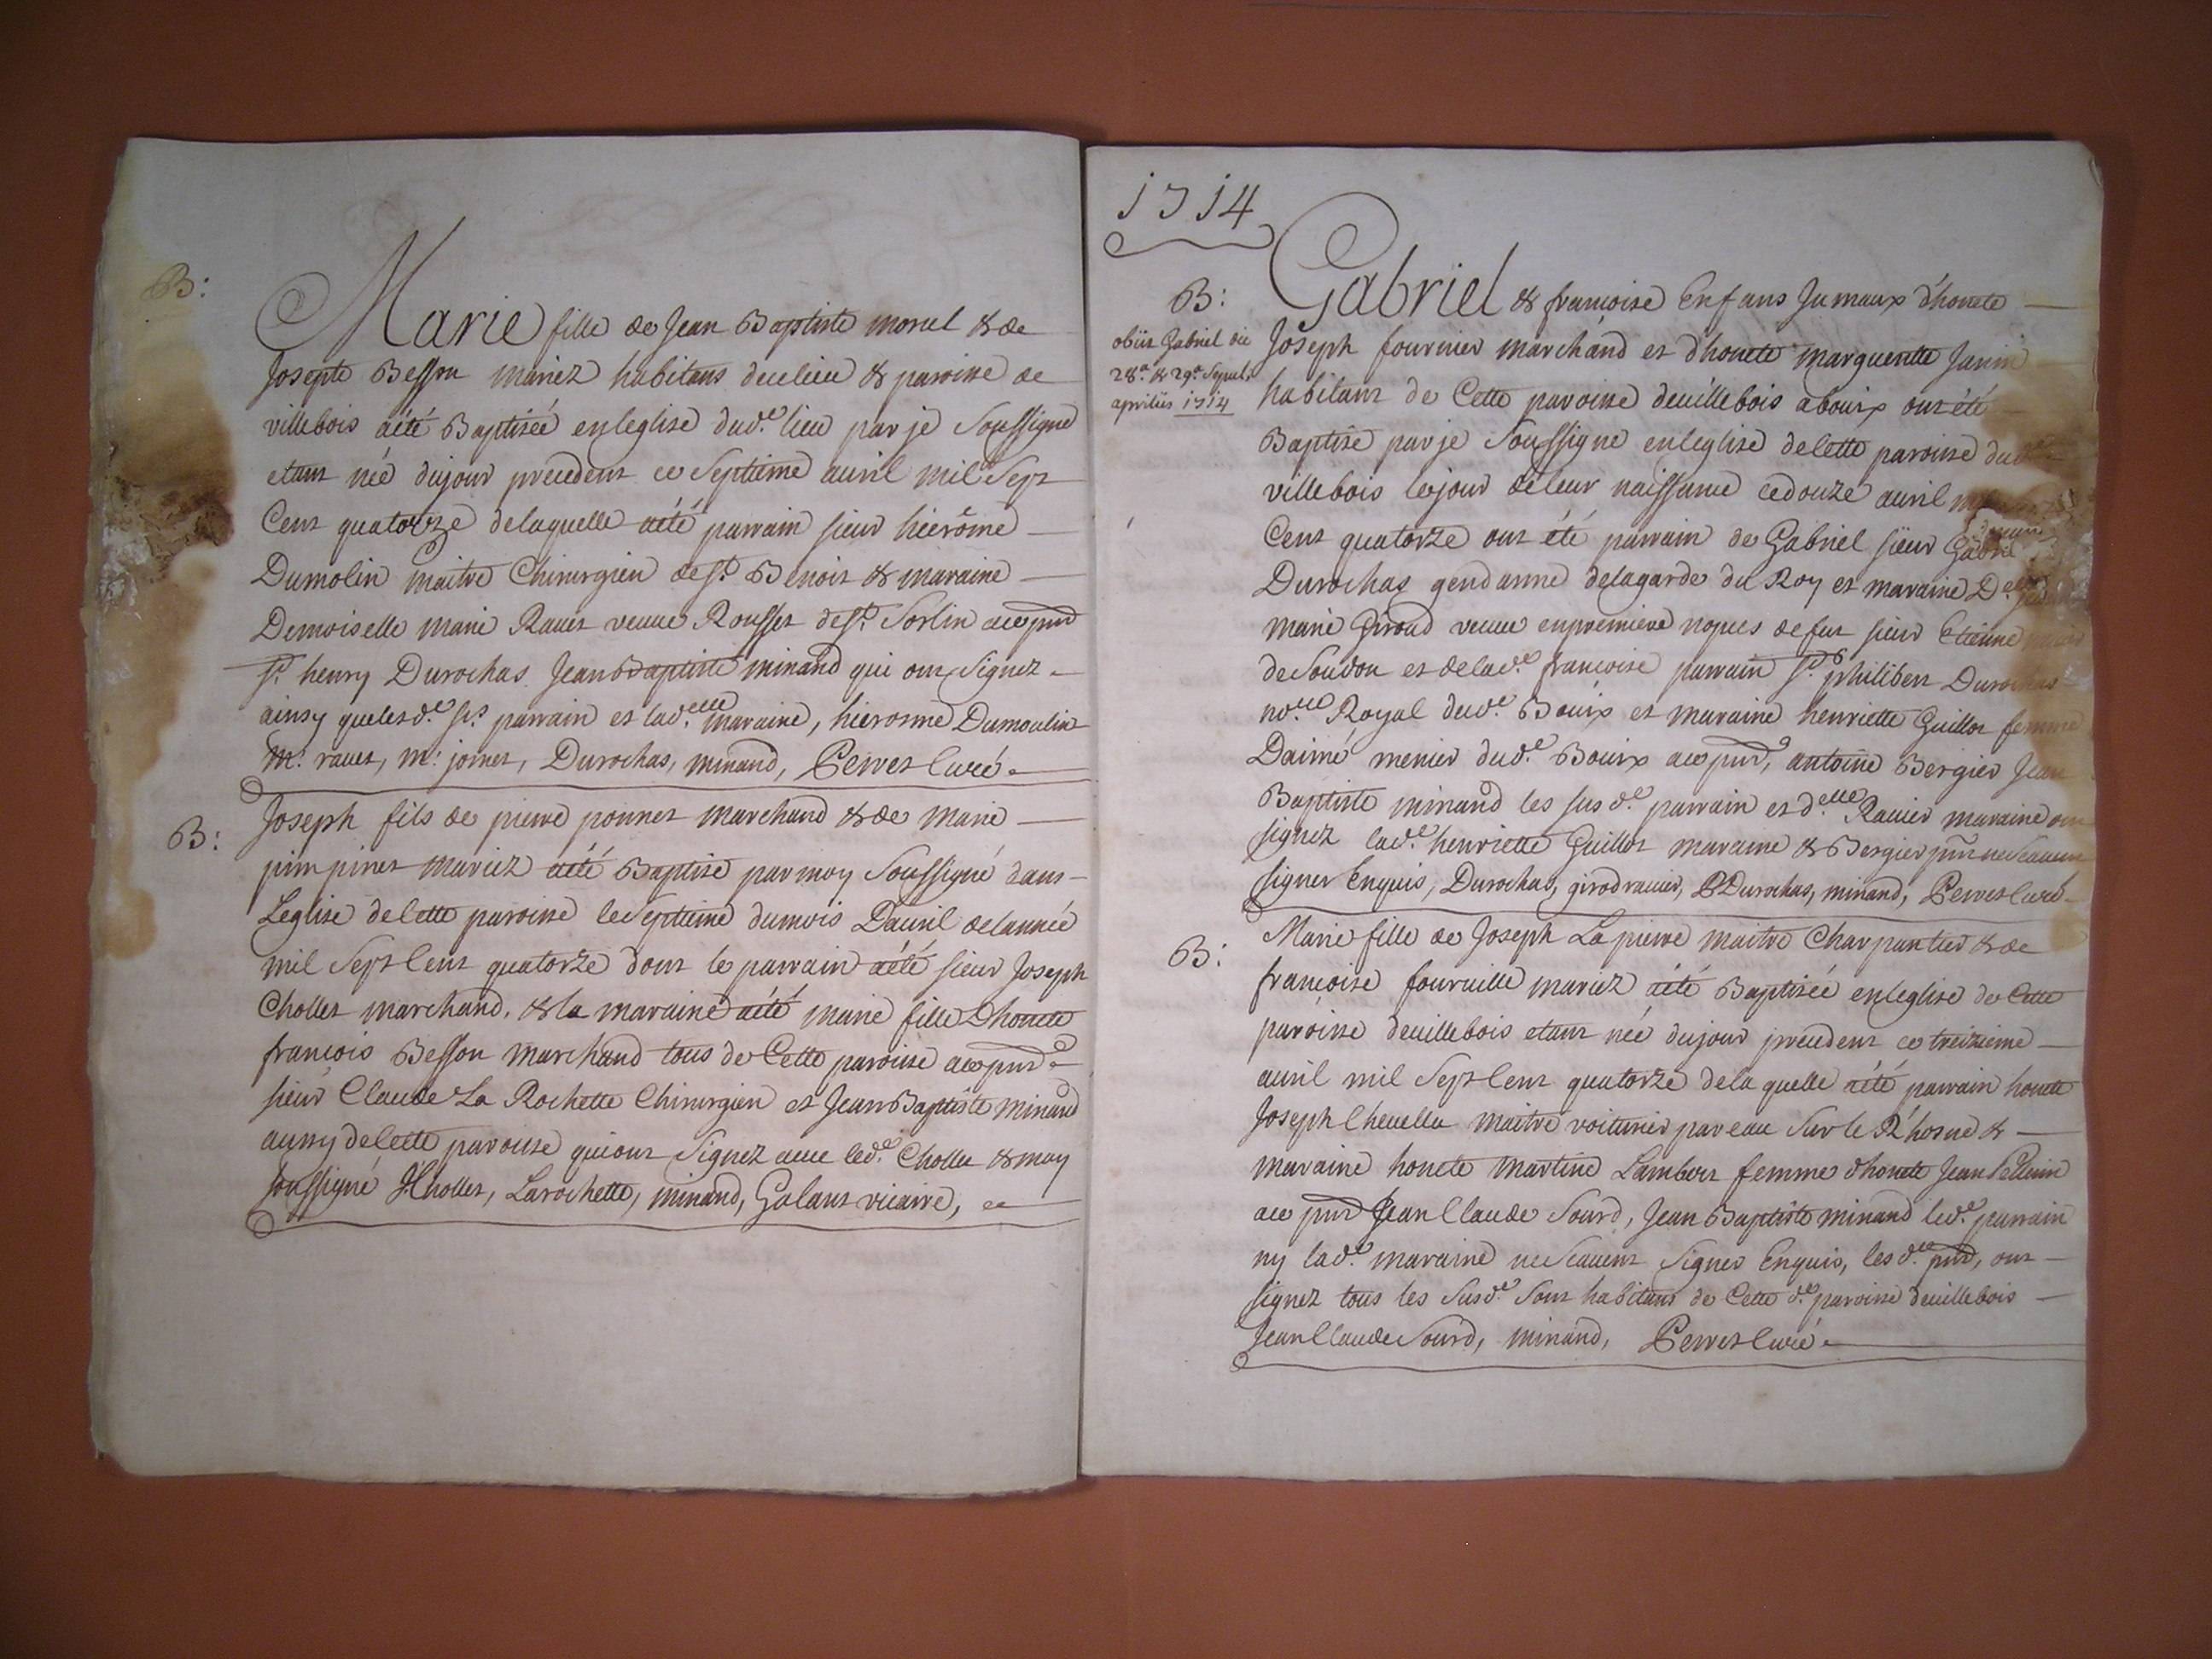 B:
Marie fille de Jean Baptiste morel & de
Josepte Besson mariez habitans decelieu & paroisse de
villebois aété Baptisée enleglise dud.e lieu par je Soussigné
etant née dujour precedent ce Septième auril mil Sept
Cent quatorze delaquelle aété parrain sieur hierôme
Dumolin maitre Chirurgien de st. Benoit & maraine
Demoiselle marie Rauet veuue Rousset de st. Sorlin aux pnts
sr. henry Durochas Jean Baptiste minand qui ont Signez
ainsy quelesd.e srs. parrain et lad.elle maraine, hierosme Dumoulin
m: rauet, m: joinet, Durochas, minand, Perret Curé.
B:
Joseph fils de pierre ponnet marchand & de Marie
pimpinet mariez aété Baptisé parmoy Soussigné dans
Leglise decette paroisse leSeptieme dumois Dauril delannée
mil Sept Cent quatorze dont le parrain aété sieur Joseph
Chollet marchand. & la maraine aété marie fille Dhonete
francois Besson marchand tous de Cette paroisse aux pnts
sieur Claude La Rochette Chirurgien et Jean Baptiste minand
aussy decette paroisse quiont Signez auec led.e Chollet & moy
soussigné JChollet, Larochette, minand, Galant vicaire,
1714
B:
obiit Gabriel die
28.a & 29.a Sepult.
aprilis 1714
Gabriel & francoise Enfans Jumaux d'honete
Joseph fournier marchand et d'honete marguerite Janin
habitant de Cette paroisse deuillebois abouix ont été
Baptisé par je Soussigné enleglise decette paroisse dud.e
villebois lejour deleur naissance cedouze auril
Cent quatorze ont été parrain de Gabriel sieur Gabriel
Durochas gendarme delagarde du Roy et maraine D.elle
marie Giroud veuue enpremiere nopces defut sieur Etienne
de Soudon et delad.e francoise parrain sr. philibert Durochas
no.re Royal dud.e Bouix et maraine henriette Guillot femme
Daimé menier dud.e Bouix aux pnts, antoine Bergier Jean
Baptiste minand les susd.e parrain et d.elle Rauier maraine ont
signez lad.e henriette Guillot maraine & Bergier pnts neScauent
signer Enquis, Durochas, girod rauier, PDurochas, minand, Perret Curé
B:
Marie fille de Joseph Lapierre maitre Charpantier & de
francoise fouruille mariez aété Baptisée enleglise de Cette
paroisse deuillebois etant née dujour precedent ce treizieme
auril mil Sept Cent quatorze delaquelle aété parrain honete
Joseph Cheuellu maitre voiturier pareau Sur le Rhosne &
maraine honete martine Lambert femme d'honete Jean Pellerin
aux pnts Jean Claude Sourd, Jean Baptiste minand led.e parrain
ny lad.e maraine neScauent Signer Enquis, lesd.es pnts, ont
signez tous les Susd.e Sont habitans de Cette d.e paroisse deuillebois
Jean Claude Sourd, minand, Perret Curé.